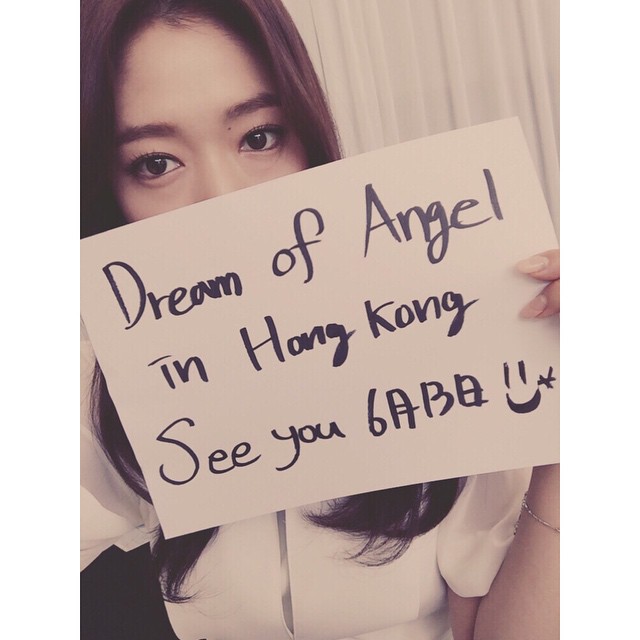 Dream of Angel
in Hong Kong
See you 6月13日 !!